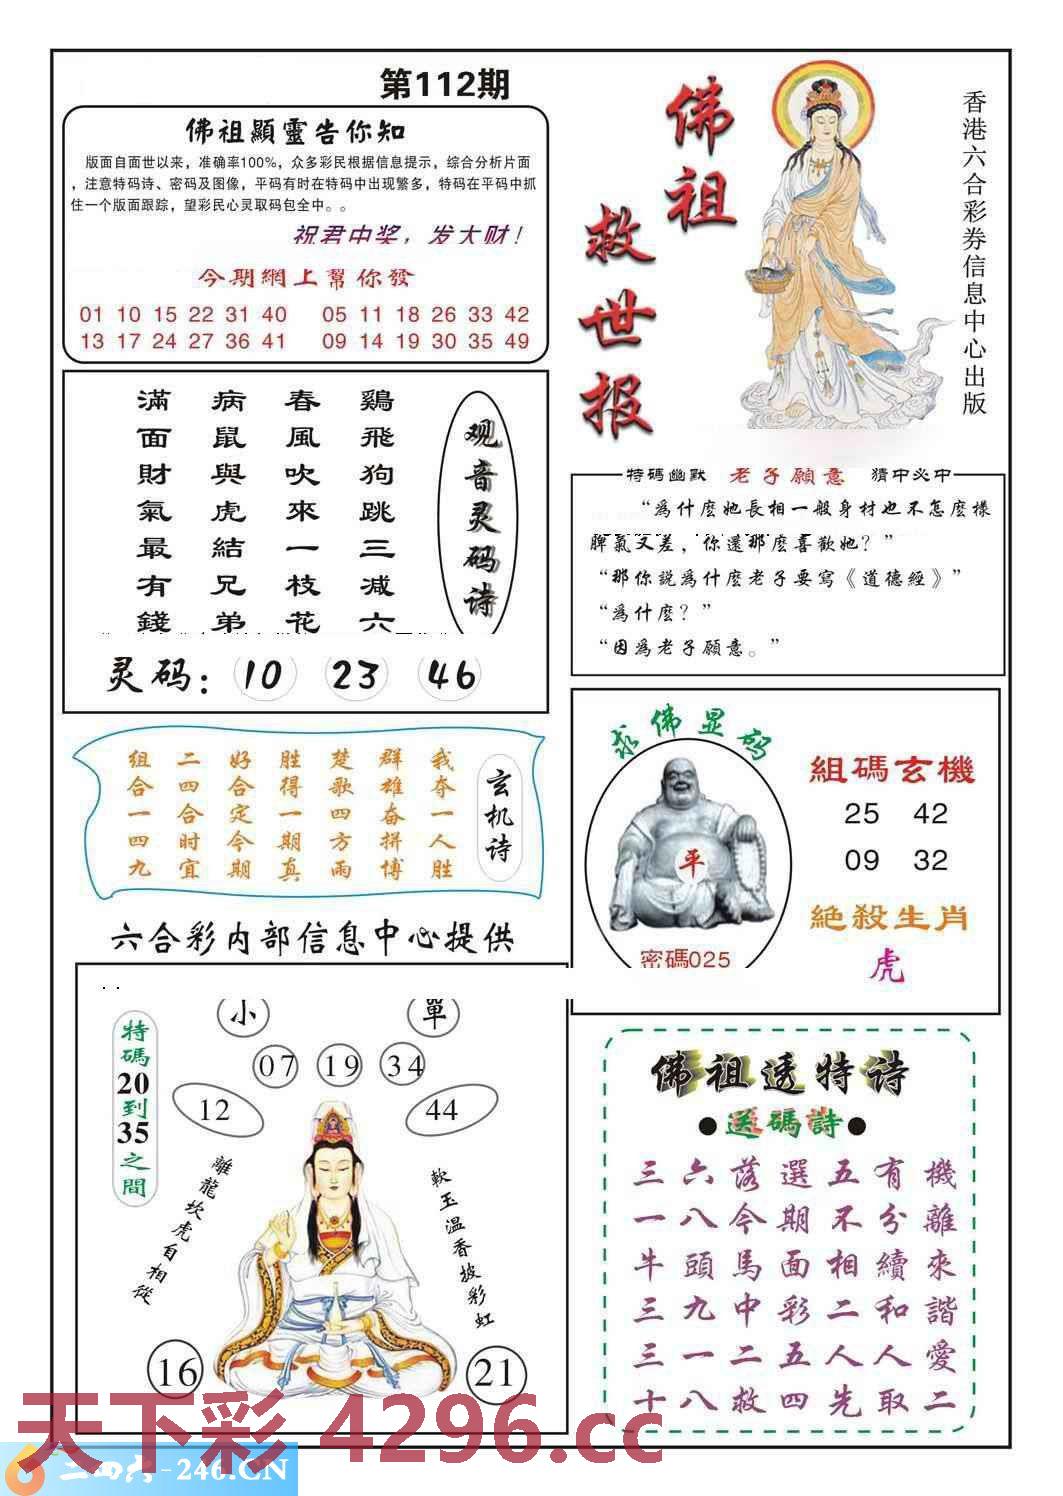 第112期
佛祖顯靈告你知
版面自面世以来，准确率100%，众多彩民根据信息提示，综合分析片面
，注意特码诗、密码及图像，平码有时在特码中出现繁多，特码在平码中抓
住一个版面跟踪，望彩民心灵取码包全中。。
祝君中奖，发大财！
今期網上幫你發
01 10 15 22 31 40 05 11 18 26 33 42
13 17 24 27 36 41 09 14 19 30 35 49
佛祖
救世报
香港六合彩券信息中心出版
观音灵码诗
鷄飛狗跳三减六
春風吹來一枝花
病鼠與虎結兄弟
滿面財氣最有錢
灵码：10 23 46
特碼幽默 老子願意 猜中必中
“爲什麽她長相一般身材也不怎麽樣
脾氣又差，你還那麽喜歡她？”
“那你説爲什麽老子要寫《道德經》”
“爲什麽？”
“因爲老子願意。”
玄机诗
我夺一人胜
群雄奋拼博
楚歌四方雨
胜得一期真
好合定今期
二四合时宜
组合一四九
求佛显码
平
密碼025
組碼玄機
25 42
09 32
絶殺生肖
虎
六合彩内部信息中心提供
特碼20到35之間
小 單
07 19 34
12 44
離龍坎虎自相從
軟玉温香披彩虹
16 21
佛祖透特诗
●送碼詩●
三六落選五有機
一八今期不分離
牛頭馬面相續來
三九中彩二和諧
三一二五人人愛
十八救四先取二
天下彩 4296.cc
二四六-246.CN